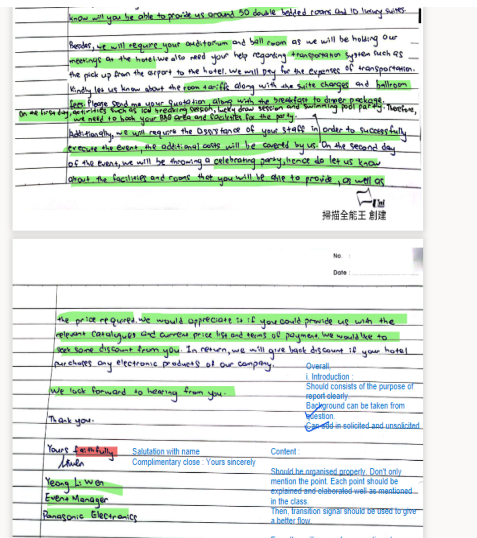 know will you be able to provide us around 50 double bedded rooms and 10 luxury suites.
Besides, we will require your auditorium and ball room as we will be holding our
meetings at the hotel. We also need your help regarding transportation system such as
the pick up from the airport to the hotel. We will pay for the expenses of transportation.
Kindly let us know about the room tariffs along with the suite charges and ballroom
fees. Please send me your quotation along with the breakfast to dinner package.
On the first day, activities such as ice breaking session, lucky draw session and swimming pool party. Therefore,
we need to book your BBQ area and facilities for the party.
Additionally, we will require the assistance of your staff in order to successfully
execute the event, the additional costs will be covered by us. On the second day
of the event, we will be throwing a celebrating party, hence do let us know
about the facilities and rooms that you will be able to provide, as well as
掃描全能王 創建
No :
Date :
the price required. We would appreciate it if you could provide us with the
relevant catalogues and current price list and terms of payment. We would like to
seek some discount from you. In return, we will give back discount if your hotel
purchases any electronic products of our company.
Overall,
i. Introduction :
Should consists of the purpose of
report clearly
Background can be taken from
question.
Can add in solicited and unsolicited
We look forward to hearing from you.
Thank you.
Yours faithfully
Salutation with name
Complimentary close : Yours sincerely
Content :
Should be organised properly. Don't only
mention the point. Each point should be
explained and elaborated well as mentioned
in the class.
Then, transition signal should be used to give
a better flow.
Yeong Li Wen
Event Manager
Panasonic Electronics